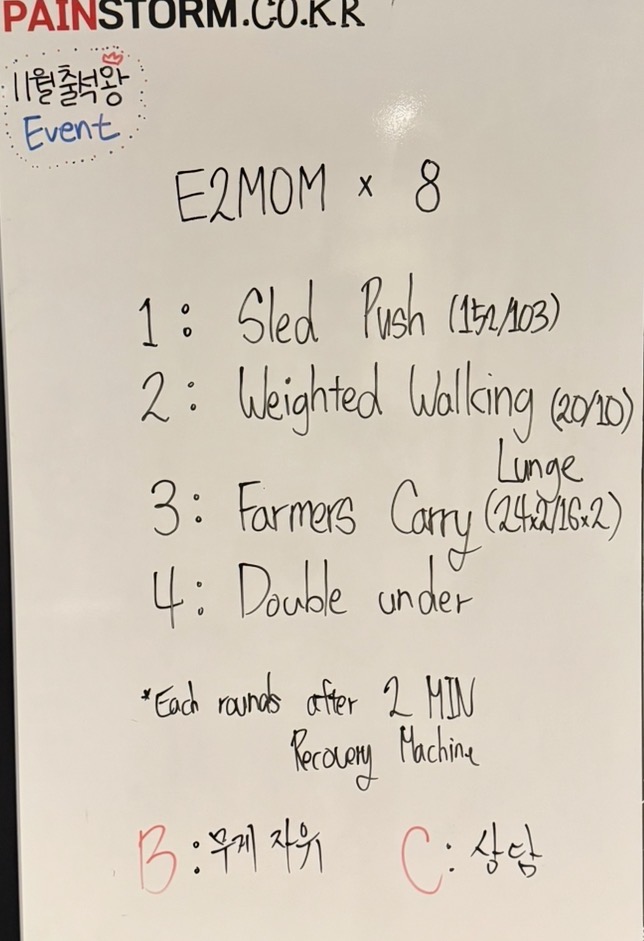 PAINSTORM.CO.KR
11월출석왕
Event
E2MOM x 8
1: Sled Push (152/103)
2: Weighted Walking (20/10)
Lunge
3: Farmers Carry (24x2/16x2)
4: Double under
*Each rounds after 2 MIN
Recovery Machine
B:무게 자위 C: 상담